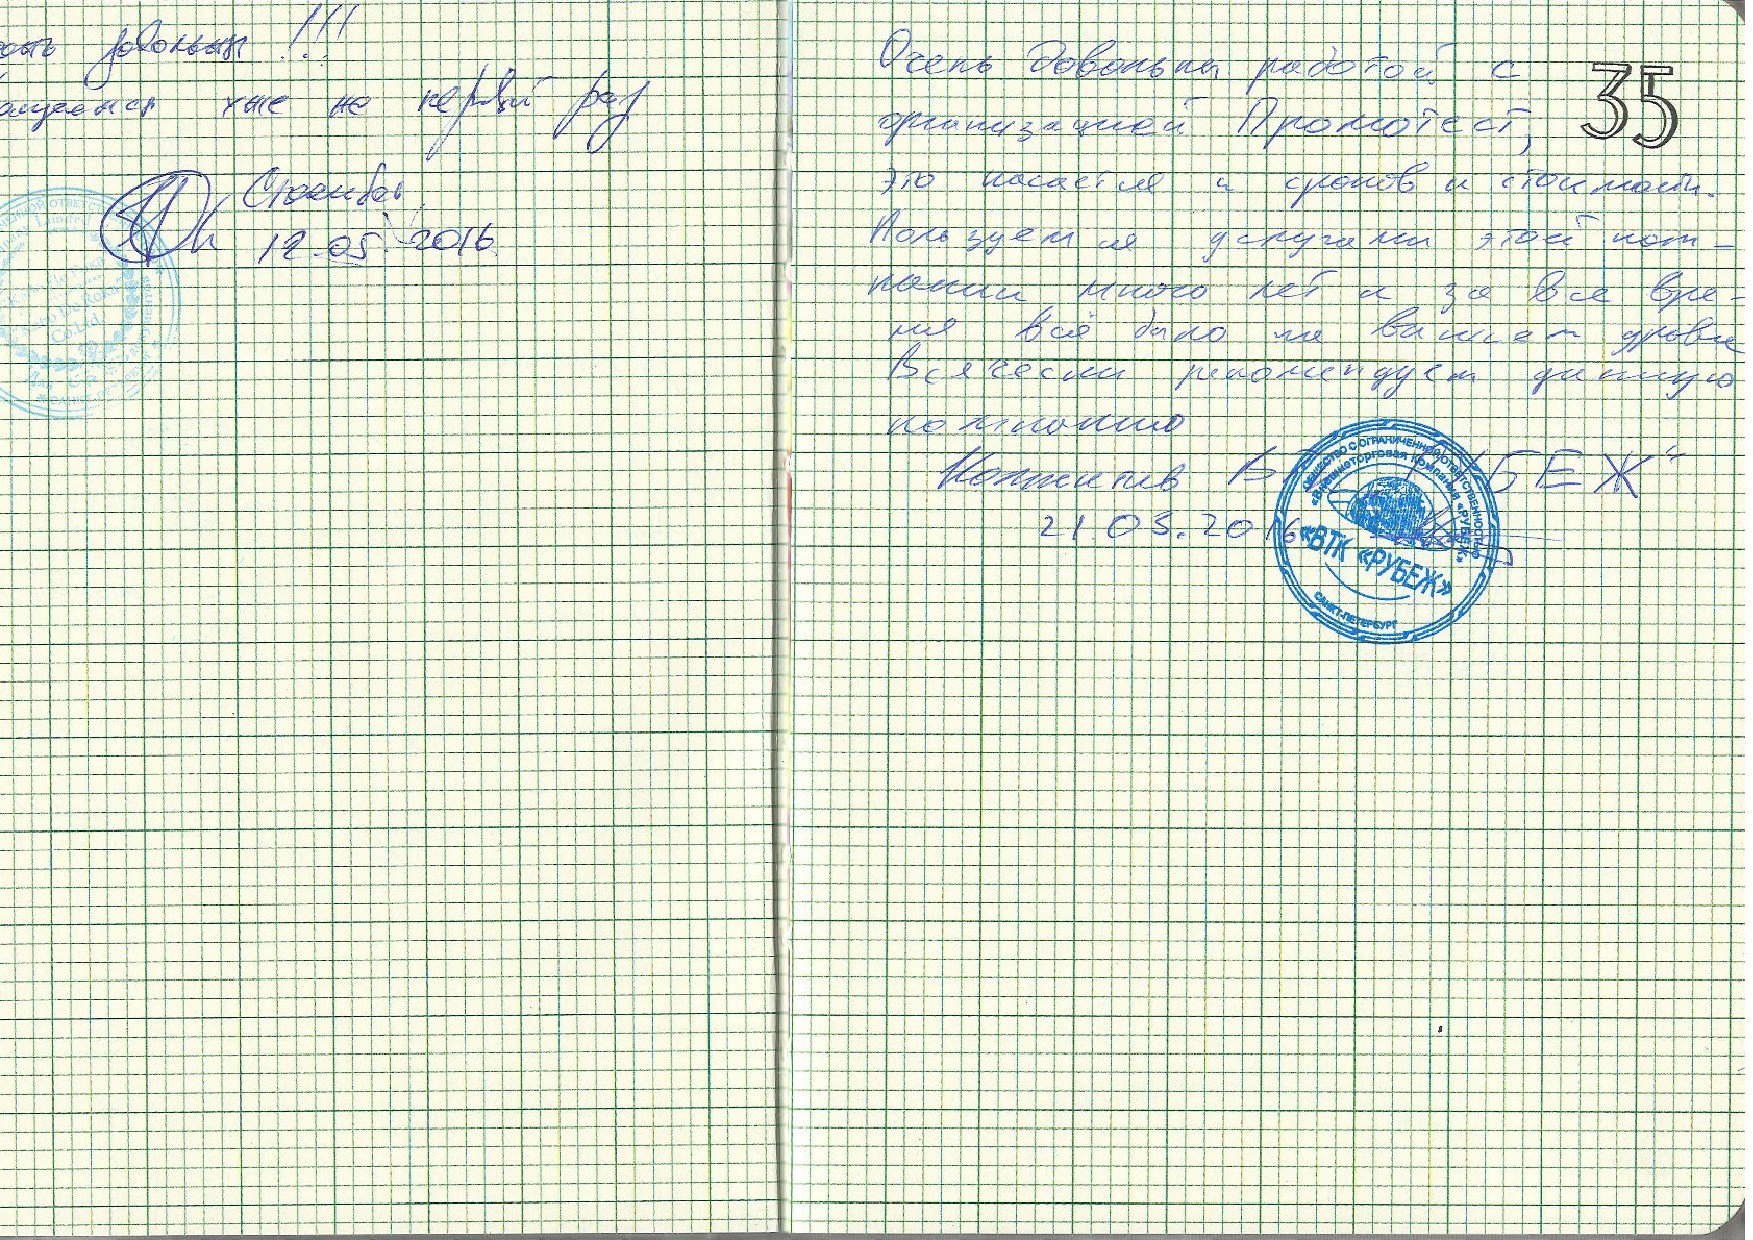 довольны !!!
уже не первый раз
12.05.2016
Limited
Co.Ltd.
35
Очень довольны работой с
организацией Промотест,
это касается и сроков и стоимости.
Пользуемся услугами этой ком-
пании много лет и за все вре-
мя всё было на вашем уровне
Всячески рекомендуем данную
компанию
Коллектив
БЕЖ"
21.05.2016
ОБЩЕСТВО С ОГРАНИЧЕННОЙ ОТВЕТСТВЕННОСТЬЮ
«Внешнеторговая компания «РУБЕЖ»
«ВТК «РУБЕЖ»
САНКТ-ПЕТЕРБУРГ